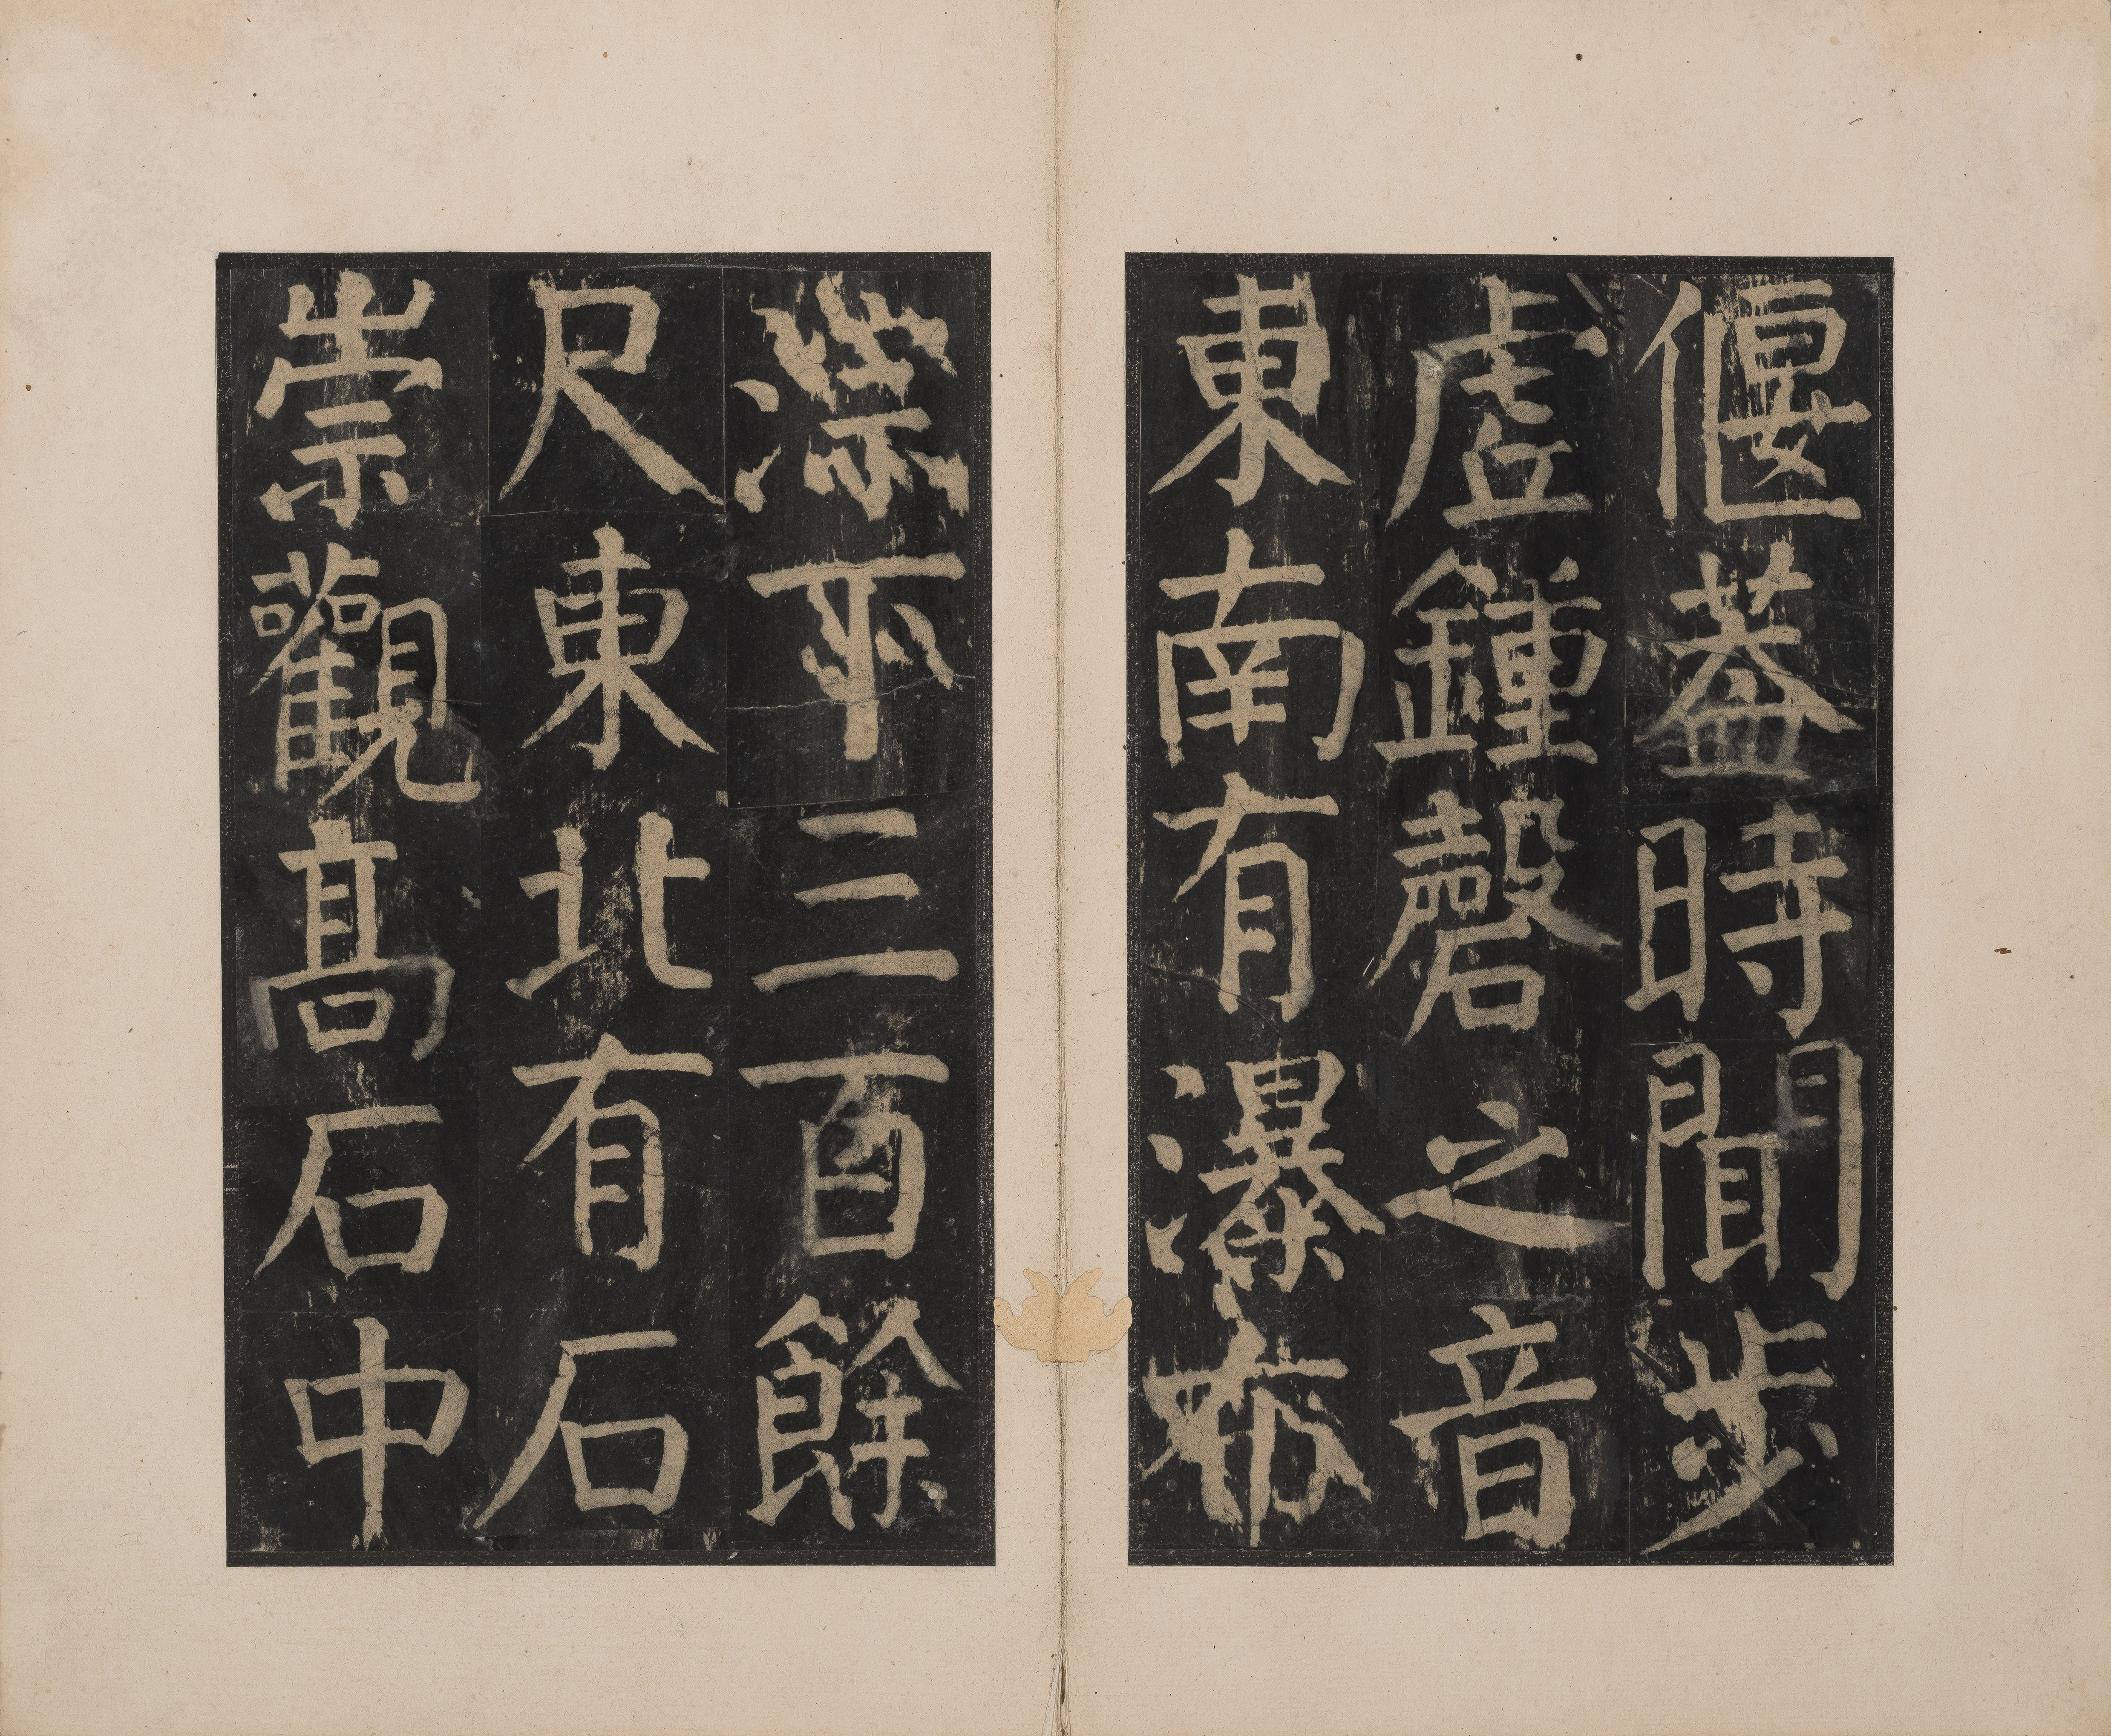 偃葢時聞步
虛鍾磬之音
東南有瀑布
漴下三百餘
尺東北有石
崇觀髙石中